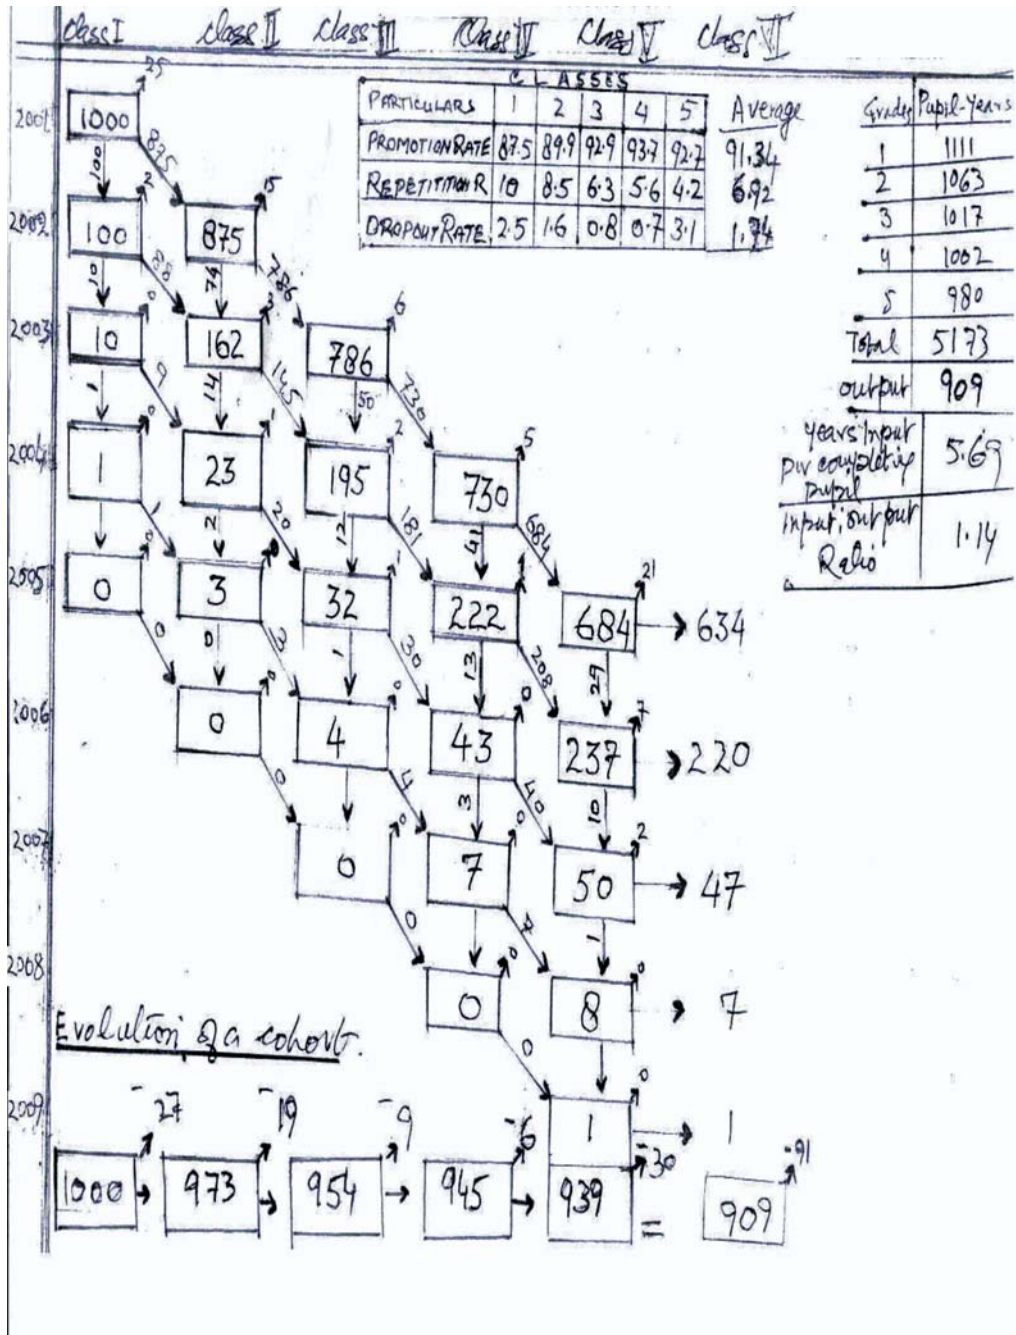 class I class II class III Class IV Class V class VI
CLASSES
PARTICULARS 1 2 3 4 5 Average
PROMOTION RATE 87.5 89.9 92.9 93.7 92.7 91.34
REPETITION R 10 8.5 6.3 5.6 4.2 6.92
DROPOUT RATE 2.5 1.6 0.8 0.7 3.1
Grades Pupil-Years
1 1111
2 1063
3 1017
4 1002
5 980
Total 5173
output 909
years input
per completing
pupil 5.69
input; output
Ratio 1.14
25
2001 1000
100 875
2 15
2002 100 875
10 88 74 786
0 3 6
2003 10 162 786
1 9 14 145 50 730
0 1 2 5
2004 1 23 195 730
1 2 20 12 181 41 684
0 1 21
2005 0 3 32 222 684 634
0 0 3 1 30 13 208 29
0 0 0 7
2006 0 4 43 237 220
0 4 3 40 10
0 0 2
2007 0 7 50 47
0 7 1
0 0
2008 0 8 7
Evolution of a cohort.
0
0
2009 1 1
-27 -19 -9 -6 -30 -91
1000 973 954 945 939 = 909